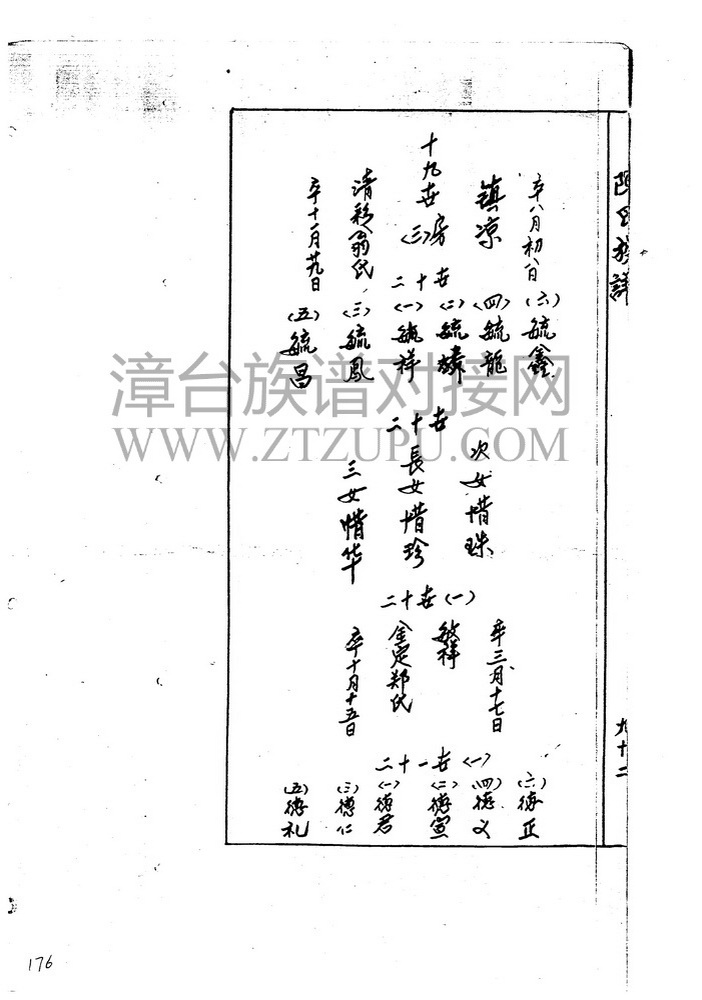 陈氏族譜
九十二
十九世房
(三)
镇凉
卒八月初八日
清彩翁氏
卒十一月廿九日
二十世
(一)毓祥
(二)毓麟
(三)毓凤
(四)毓龍
(五)毓昌
(六)毓鑫
二十世
長女惜珍
次女惜珠
三女惜华
二十世(一)
毓祥
卒三月十七日
金定郑氏
卒十月十五日
二十一世(一)
(一)德君
(二)德宣
(三)德仁
(四)德义
(五)德礼
(六)德正
漳台族谱对接网
WWW.ZTZUPU.COM
176